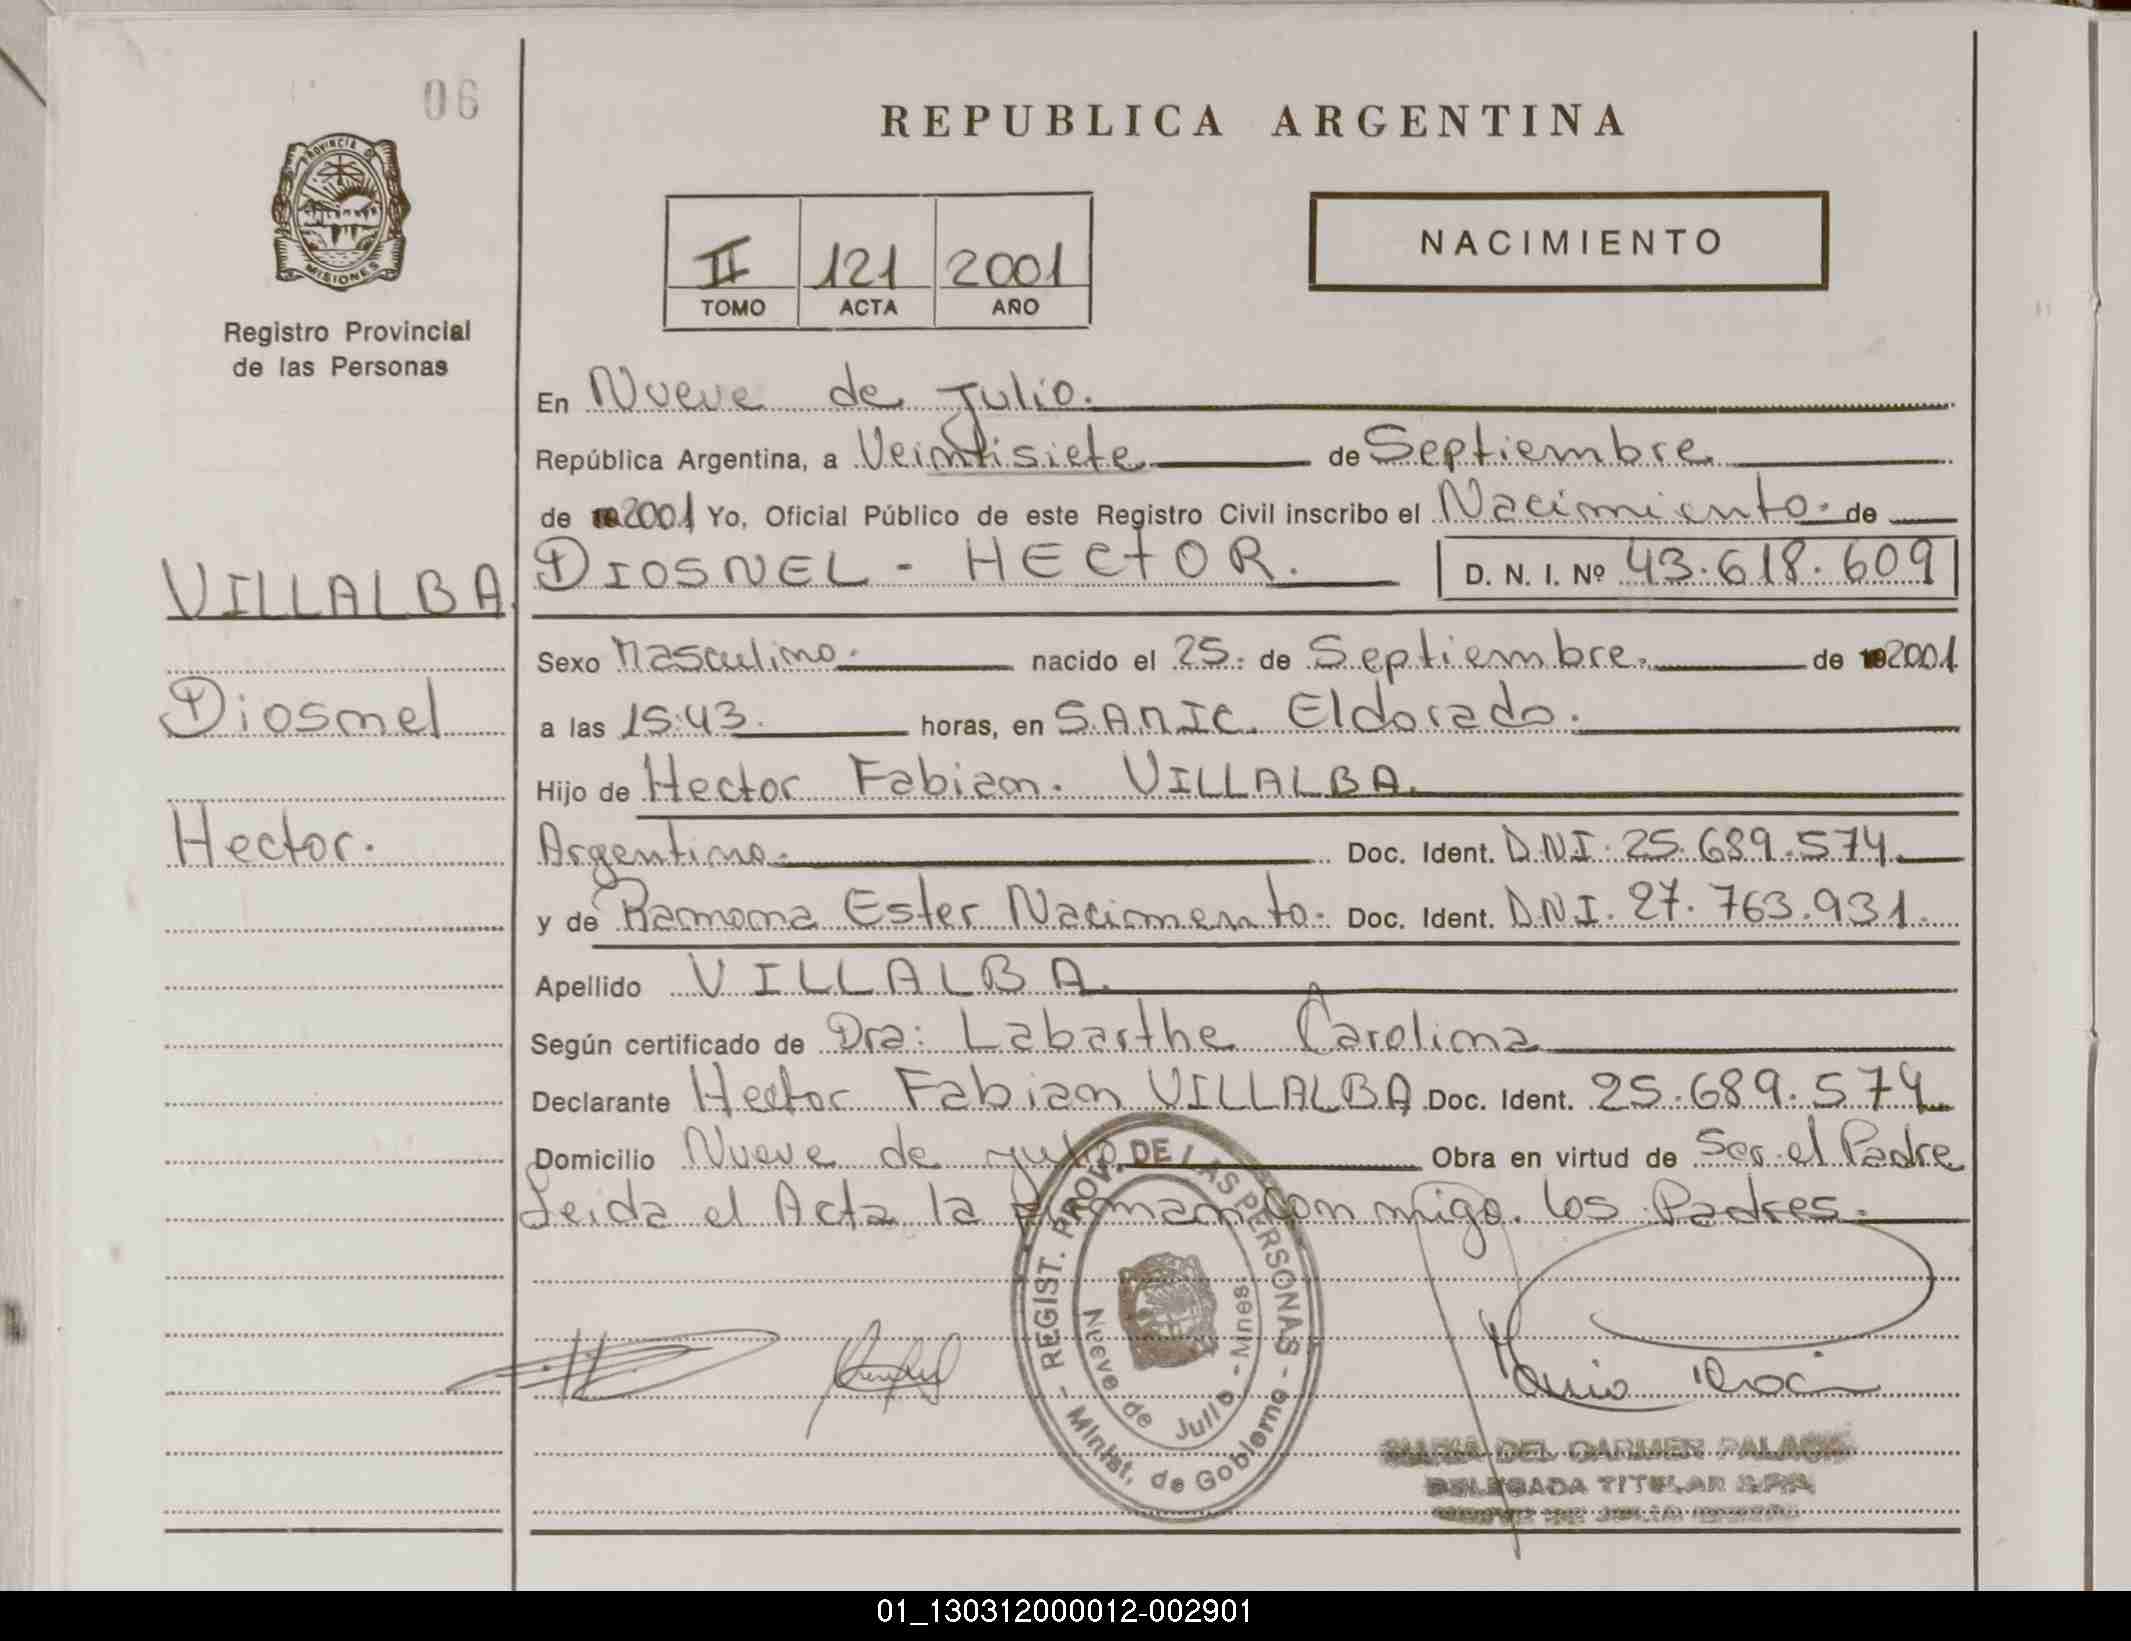 06
REPUBLICA ARGENTINA
PROVINCIA DE
MISIONES
Registro Provincial
de las Personas
II 121 2001
TOMO ACTA AÑO
NACIMIENTO
En Nueve de Julio.
República Argentina, a Veintisiete de Septiembre
de 19 2001 Yo, Oficial Público de este Registro Civil inscribo el Nacimiento. de
VILLALBA.
DIOSNEL - HECTOR. D. N. I. Nº 43.618.609
Sexo Masculino. nacido el 25. de Septiembre. de 19 2001.
Diosnel
a las 15:43. horas, en S.A.M.I.C. Eldorado.
Hijo de Hector Fabian. VILLALBA.
Hector.
Argentino. Doc. Ident. D.N.I. 25.689.574.
y de Ramona Ester Nacimento. Doc. Ident. D.N.I. 27.763.931.
Apellido VILLALBA.
Según certificado de Dra: Labarthe Carolina
Declarante Hector Fabian VILLALBA Doc. Ident. 25.689.574
Domicilio Nueve de Julio. Obra en virtud de Ser el Padre
Leida el Acta la firman conmigo. los Padres.
- REGIST. PROV. DE LAS PERSONAS -
Minist. de Gobierno
Nueve de Julio - Mnes.
MARIA DEL CARMEN PALACIO
DELEGADA TITULAR
01_130312000012-002901